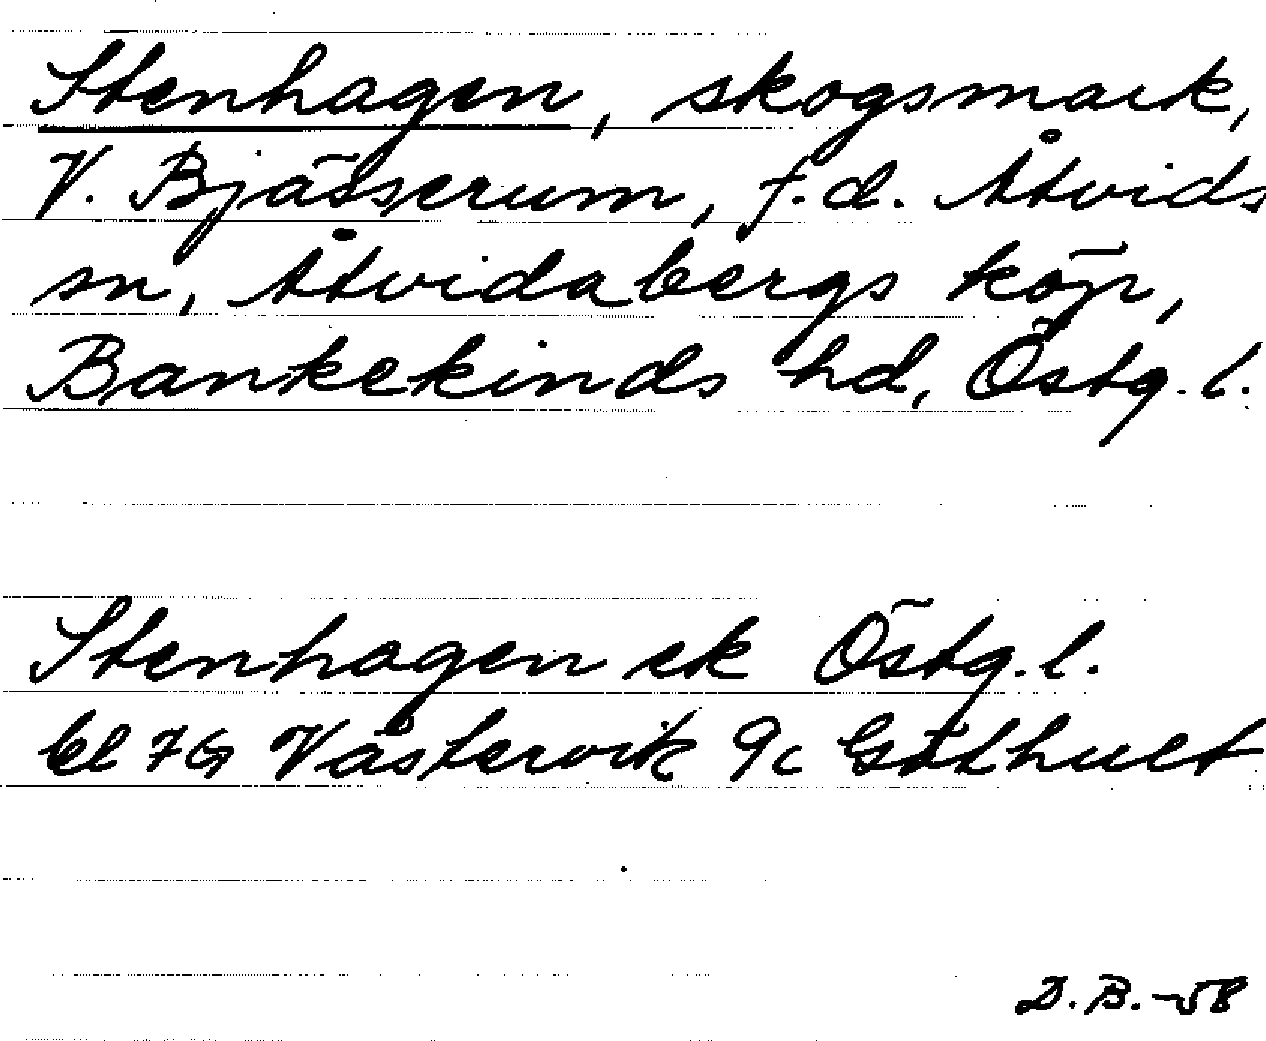 Stenhagen, skogsmark,
V. Bjässerum, f.d. Åtvids
sn, Åtvidabergs köp,
Bankekinds hd, Östg. l.
Stenhagen ek Östg. l.
bl 7G Västervik 9c Göthult
D.B.-58